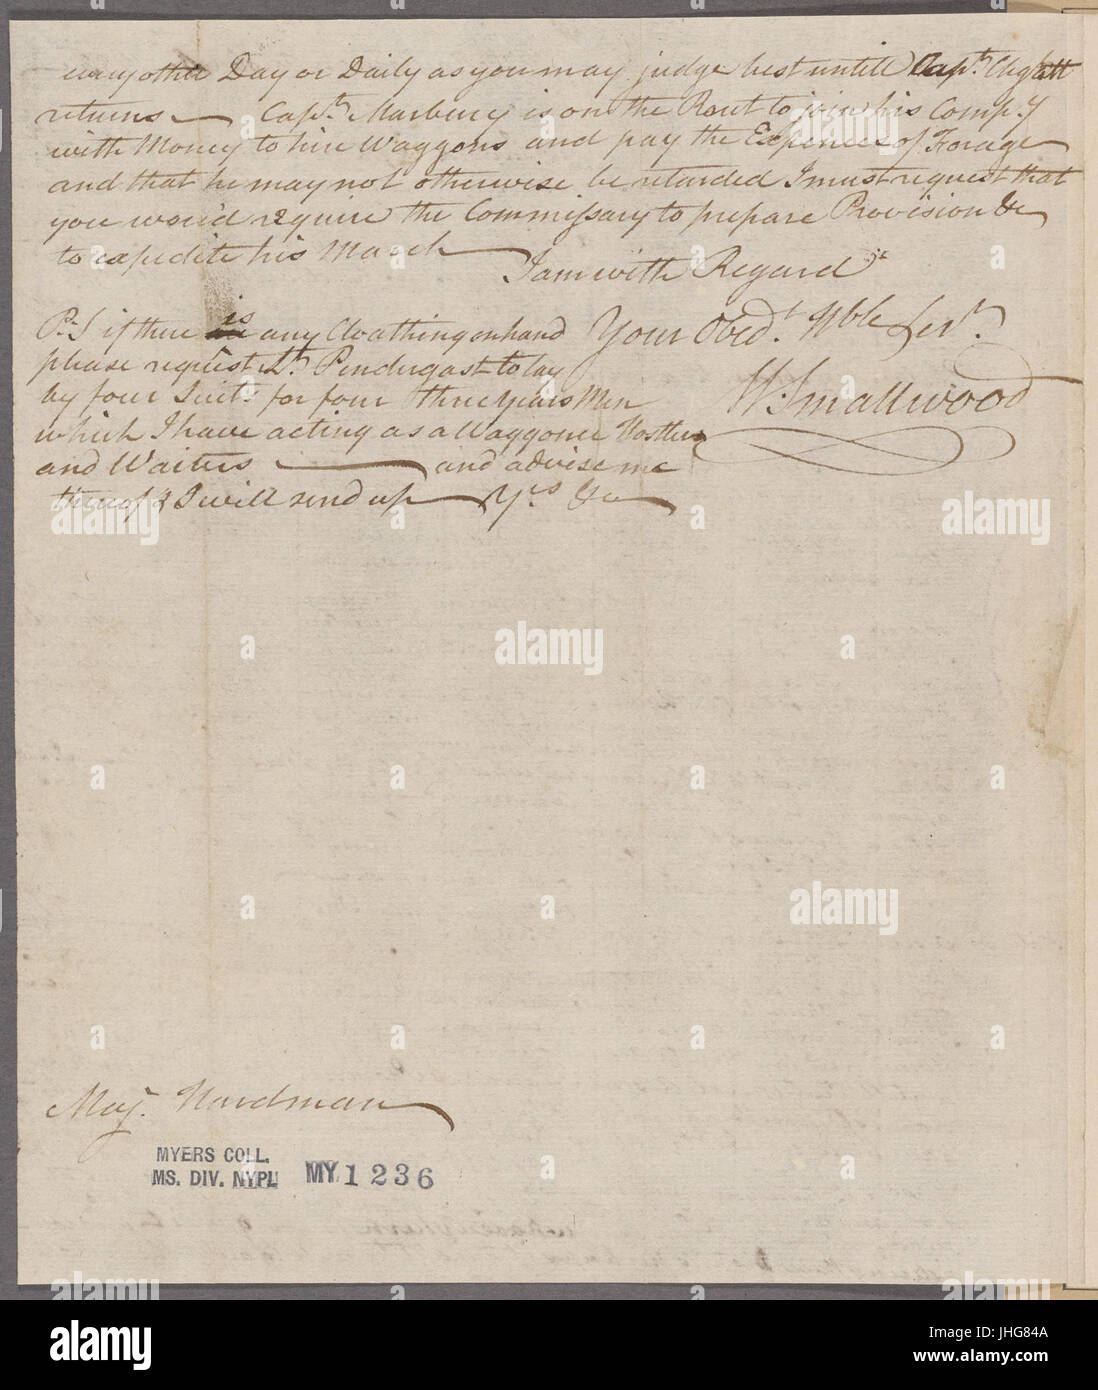 every other Day or Daily as you may judge best untill Capt.
returns — Capt. Marbury is on the Rout to join his Comp.y
with Money to hire Waggons and pay the Expences of Forage
and that he may not otherwise be retarded I must request that
you would require the Commissary to prepare Provision &c
to expedite his March —
I am with Regard
Your Obed.t Hble Serv.t
W. Smallwood
P.S if there is any Cloathing on hand
please request Lt. Pendergast to lay
by four Suits for four three Years Men
which I have acting as a Waggoner Hostler
and Waiters — and advise me
thereof & I will send up — Y.rs &c
Maj.r Hardman
MYERS COLL.
MS. DIV. NYPL MY 1236
alamy
alamy
alamy
alamy
alamy
a
Image ID: JHG84A
www.alamy.com